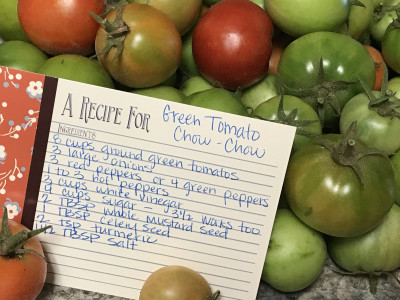 A Recipe For
Green Tomato
Chow-Chow
Ingredients:
cups ground green tomatos
3 large onions
3 red peppers or 4 green peppers
1 to 3 hot peppers
cups white vinegar
cups sugar - 3 1/2 works too
2 TBSP whole mustard seed
1 TBSP celery seed
2 TSP turmeric
TBSP salt